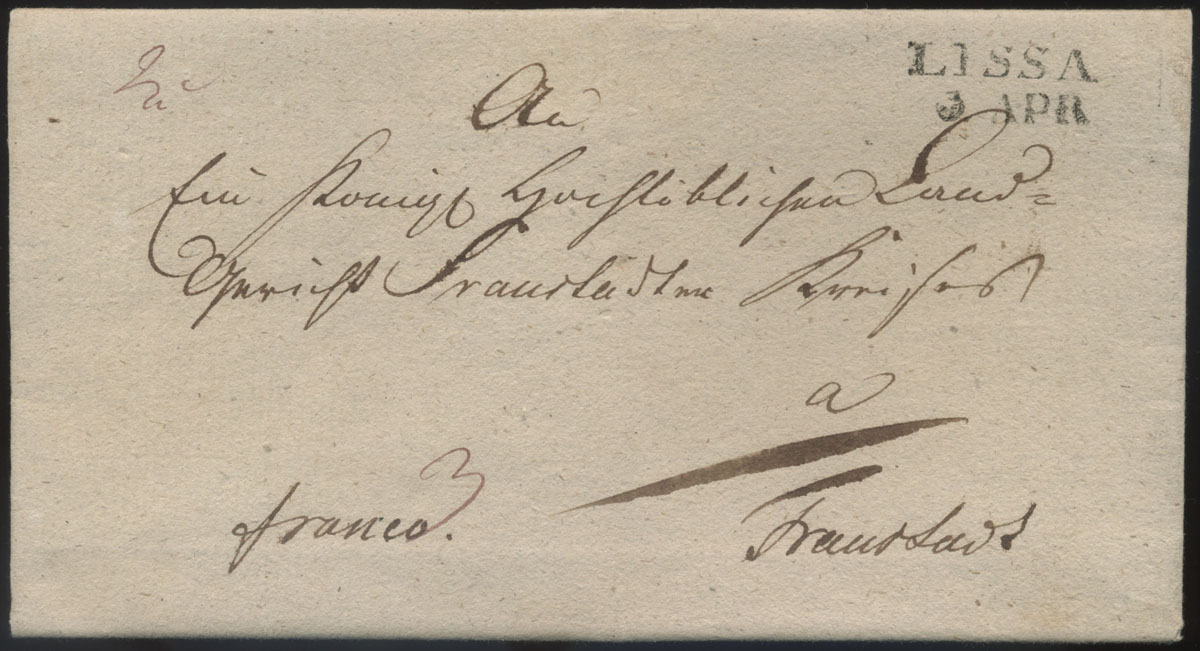 LISSA
3 APR
An
Ein Königl Hochlöblichen Land=
Gericht Fraustadter Kreises
a
franco. 3
Fraustadt